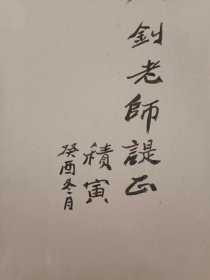 釗老師諟正
積寅
癸酉冬月